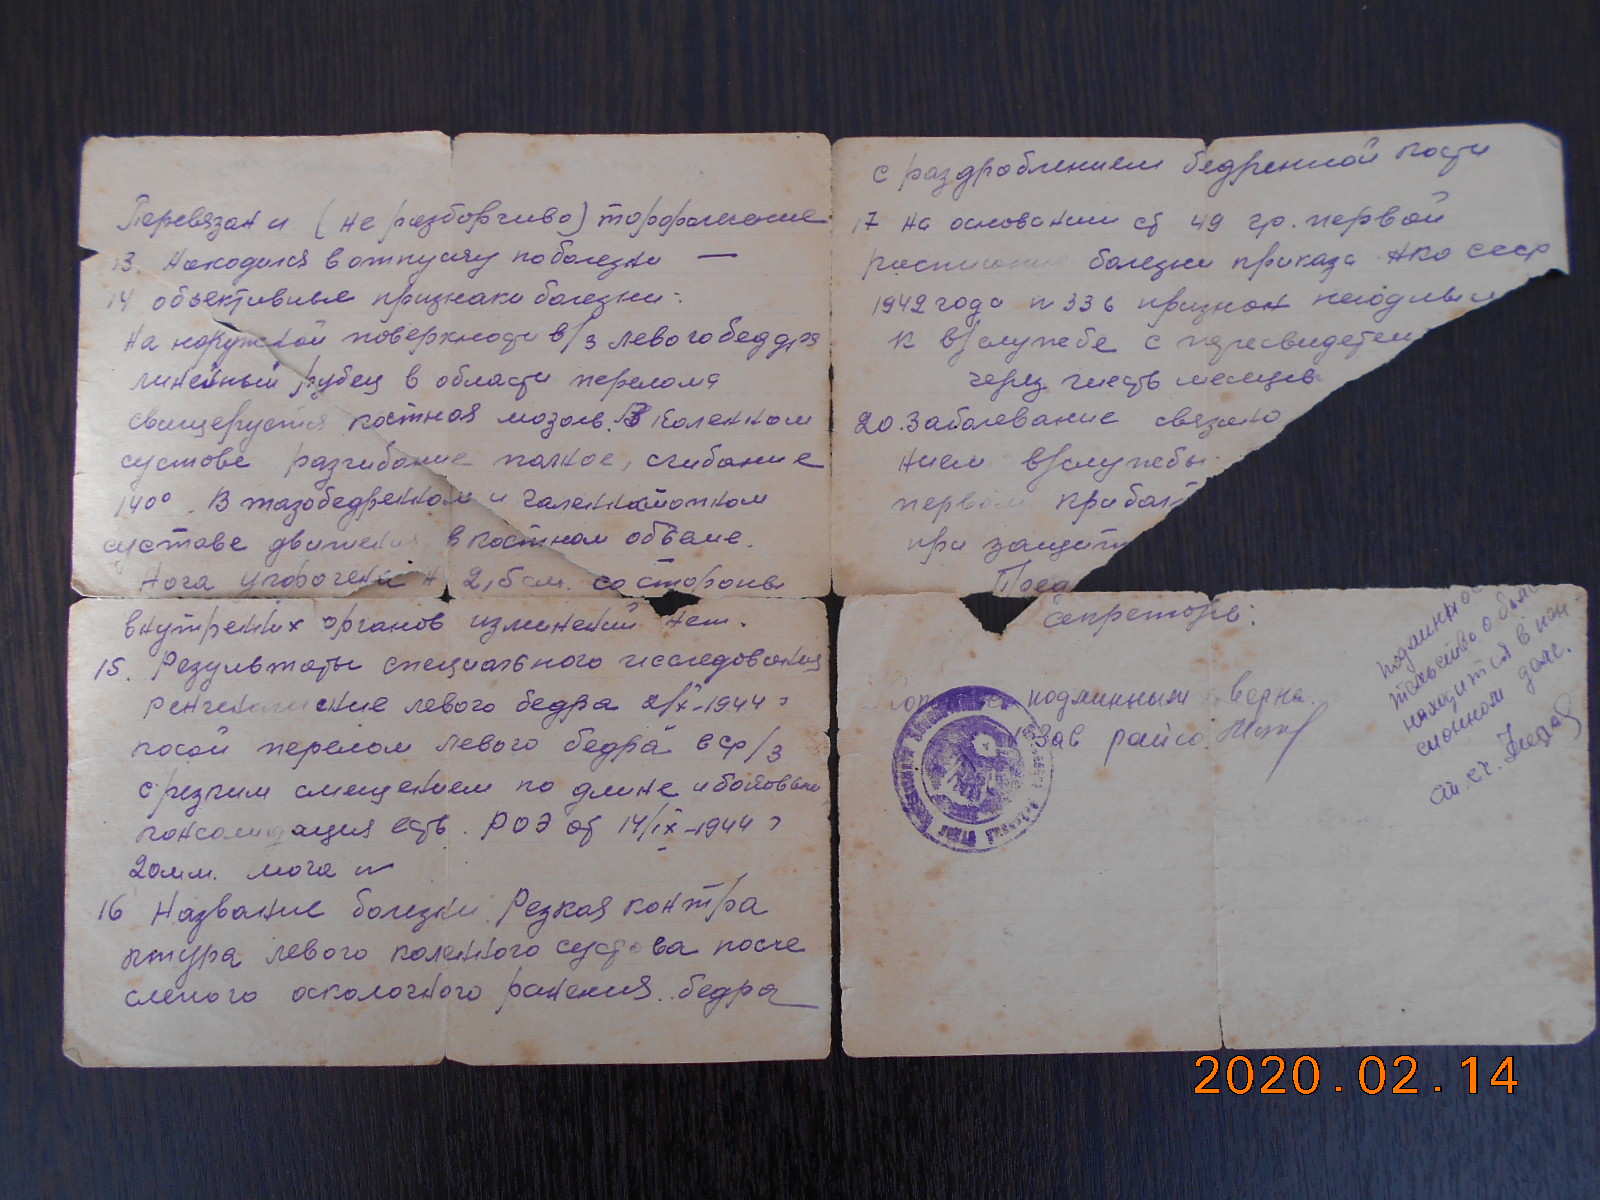 Перевязан и (не разборчиво)
13. Находился в отпуску по болезни —
14 объективные признаки болезни:
на наружной поверхности в/3 левого беддра
линейный рубец в области перелома
костная мозоль. В коленном
суставе разгибание полное, сгибание
140°. В тазобедренном и
суставе движения в объеме.
Нога укорочена н 2,5 см. со стороны
внутренних органов изминений нет.
15. Результаты специального исследования
левого бедра 2/X-1944 г
косой перелом левого бедра в ср/3
с резким смещением по длине и
консолидация есть. РОЭ от 14/IX-1944 г
20мм. моча
16 Название болезни. Резкая контра
ктура левого коленного сустава после
слепого осколочного ранения бедра
с раздроблением бедренной кости
17 На основании ст 49 гр. первой
болезни приказа НКО СССР
1942 года n 336 признан негодным
к в/службе с пересвидетел
через шесть месяцев
20. Заболевание связано
нием в/службы
первом прибалт
при защит
Пред
Секретарь:
подлинным верна.
Зав райсо.
подлинное
находится в пен
сионном деле.